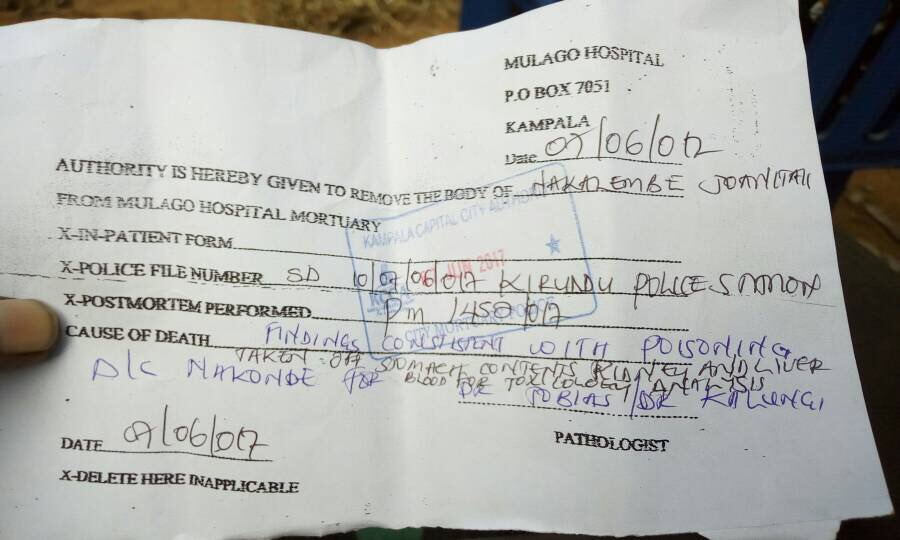 MULAGO HOSPITAL
P.O BOX 7051
KAMPALA
Date 07/06/017
AUTHORITY IS HEREBY GIVEN TO REMOVE THE BODY OF NAKALEMBE
FROM MULAGO HOSPITAL MORTUARY
KAMPALA CAPITAL CITY AUTHORITY
X-IN-PATIENT FORM
JUN 2017
X-POLICE FILE NUMBER SD 10/07/06/017 KIRUNDU POLICE STATION
X-POSTMORTEM PERFORMED Pm 1450/017
CITY MORTUARY
CAUSE OF DEATH FINDINGS CONSISTENT WITH POISONING
TAKEN OFF STOMACH CONTENTS KIDNEY AND LIVER
D/C NAKONDE FOR BLOOD FOR TOXICOLOGY ANALYSIS
DR TOBIAS / DR KALUNGI
DATE 07/06/017
PATHOLOGIST
X-DELETE HERE INAPPLICABLE